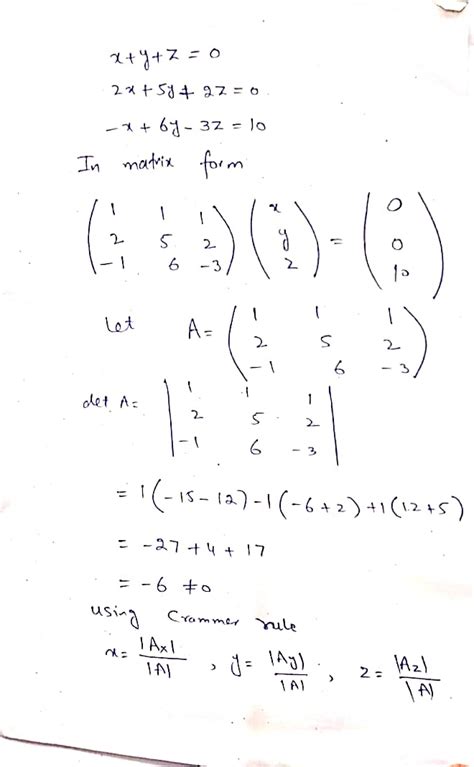 x+y+z = 0
2x+5y+2z = 0
-x+6y-3z = 10
In matrix form
( 1 1 1 ) ( x ) = ( 0 )
( 2 5 2 ) ( y ) ( 0 )
( -1 6 -3 ) ( z ) ( 10 )
Let A = ( 1 1 1 )
( 2 5 2 )
( -1 6 -3 )
det A = | 1 1 1 |
| 2 5 2 |
| -1 6 -3 |
= 1(-15-12)-1(-6+2)+1(12+5)
= -27+4+17
= -6 ≠0
using Crammer rule
x = |Ax| / |A| , y = |Ay| / |A| , z = |Az| / |A|